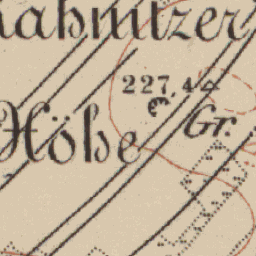 ahnitzer
227,4
Gr.
Höhe